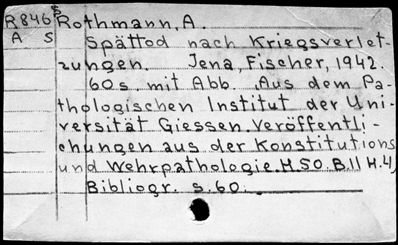 R846 Rothmann, A.
A S Spättod nach Kriegsverlet-
zungen. Jena, Fischer, 1942.
60s. mit Abb. Aus dem Pa-
thologischen Institut der Uni-
versität Giessen. Veröffentli-
chungen aus der Konstitutions
und Wehrpathologie. H.50. B.11 H.4,
Bibliogr. s. 60.